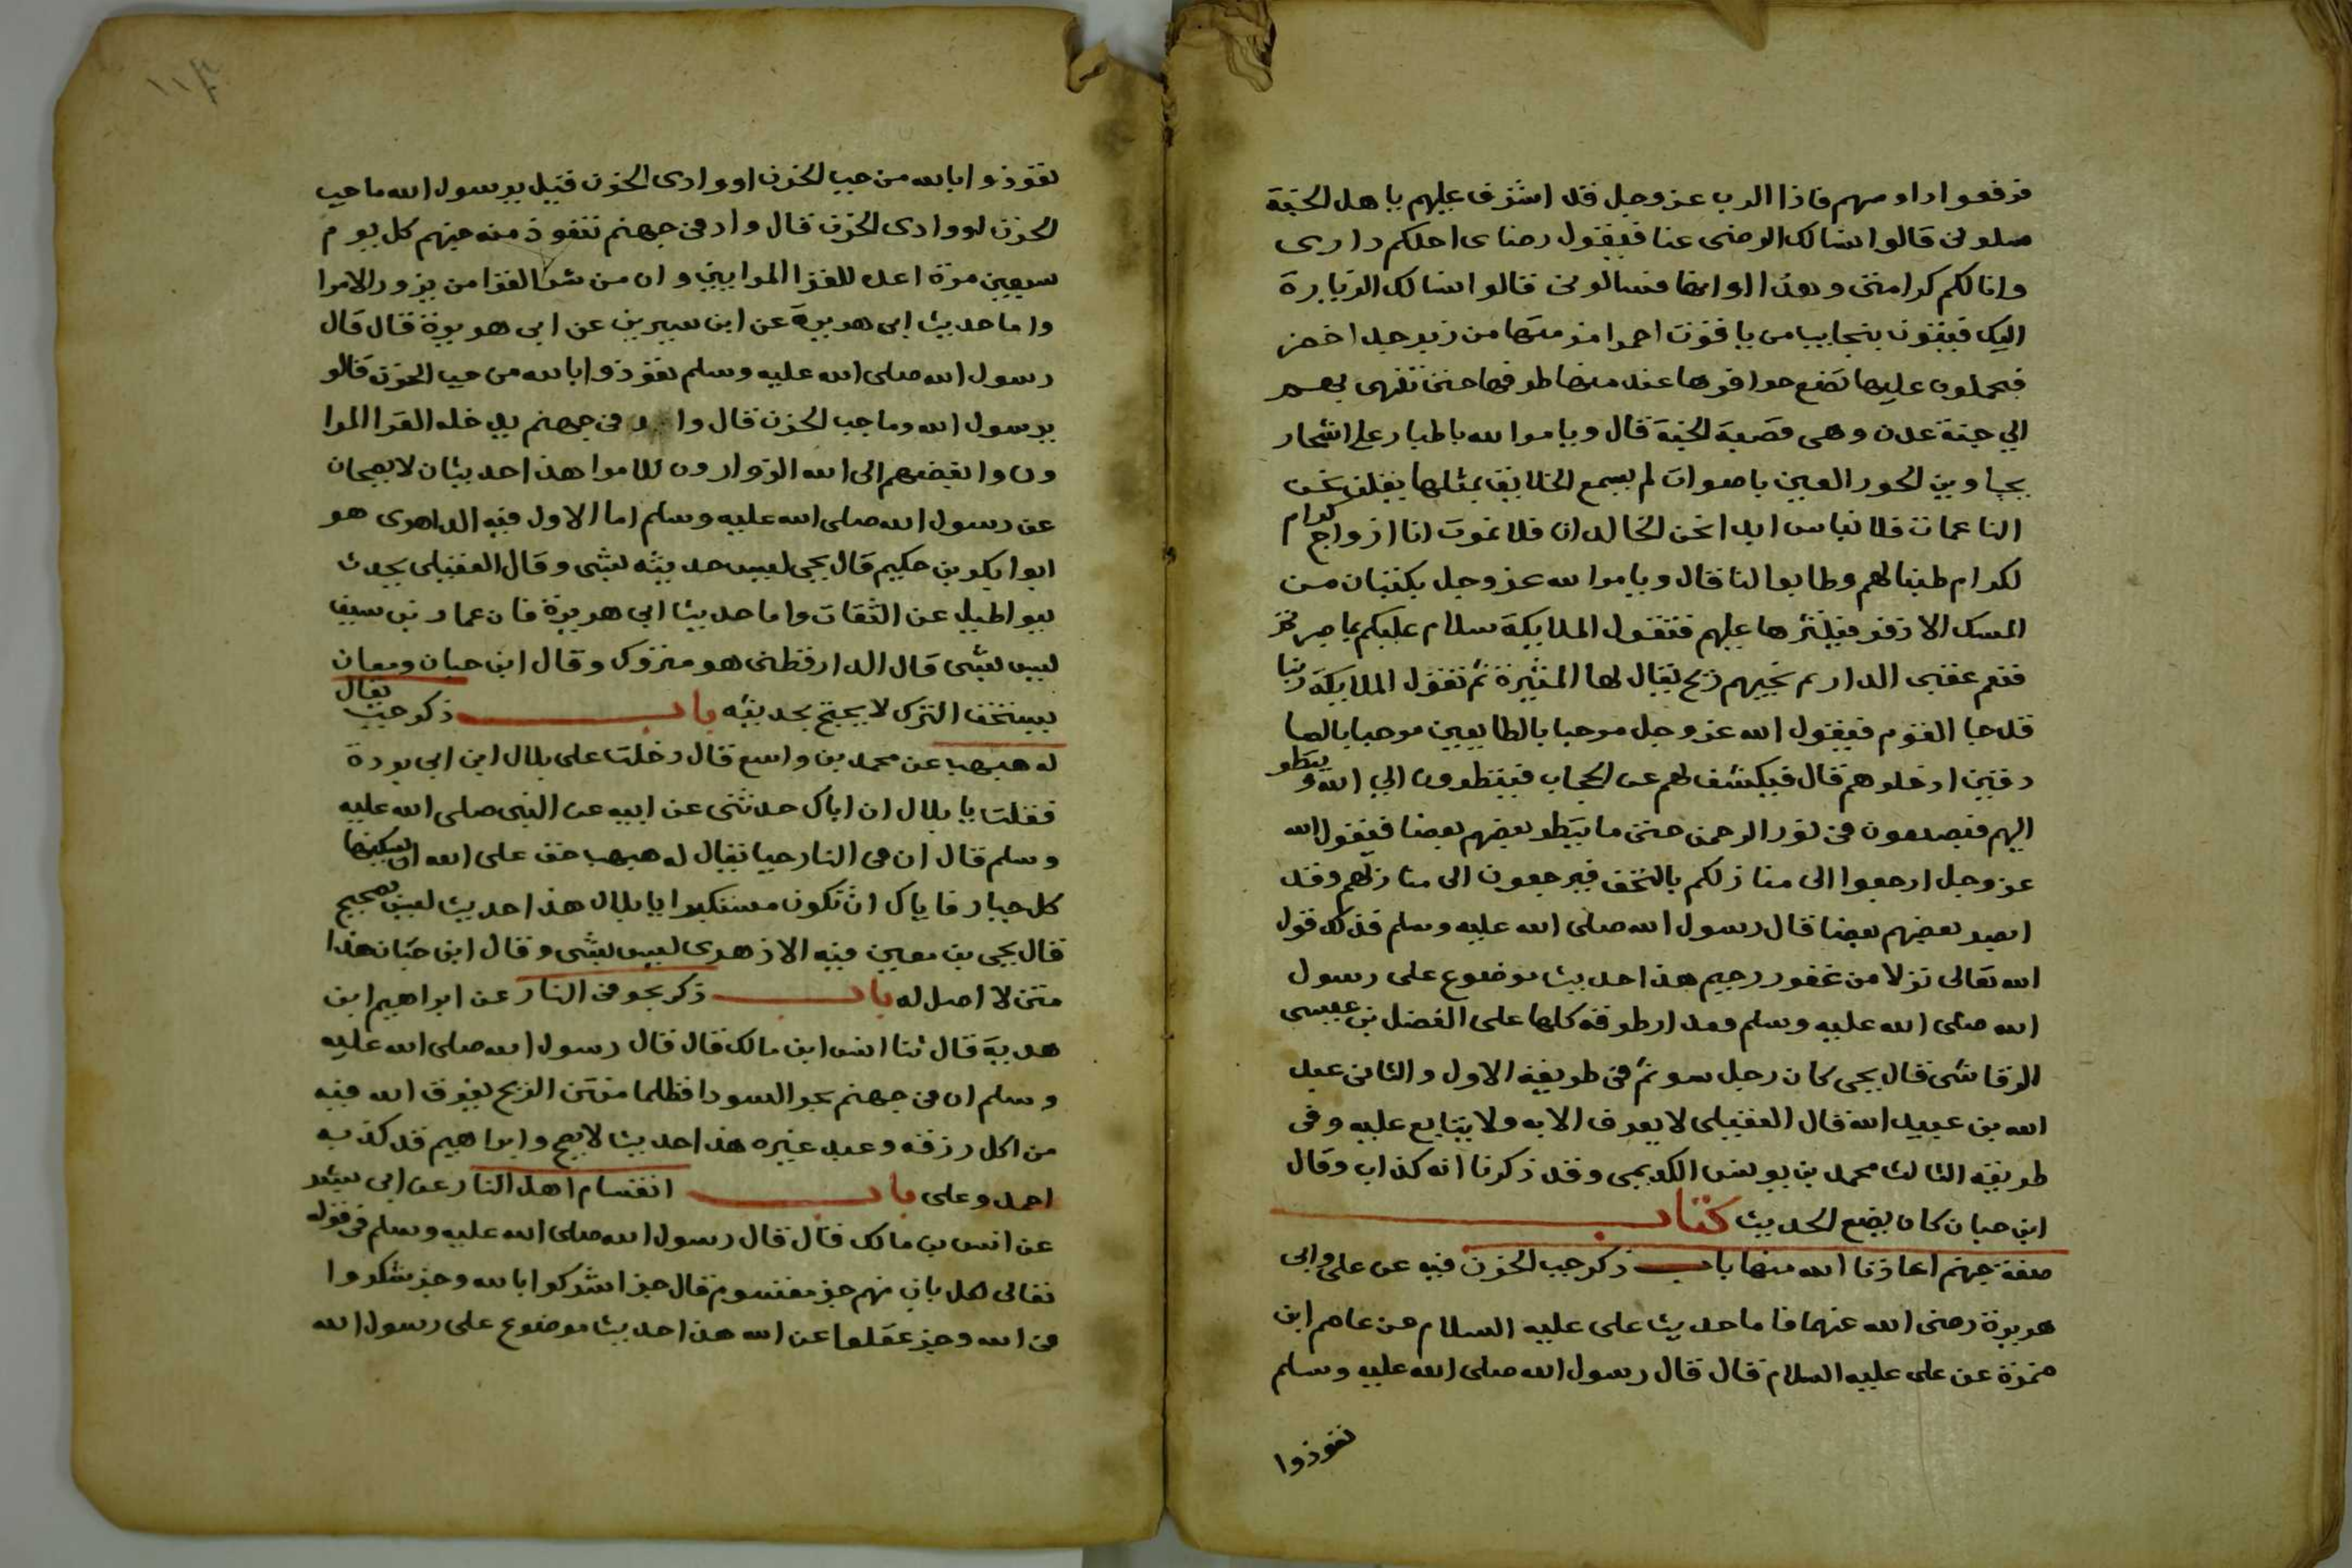 فرفعوا راوسهم فاذا الرب عز وجل قد اشرف عليهم يا هل الجنة
سلونى قالوا انسالك الرضى عنا فيقول رضاى احلكم دارى
وانالكم كرامتى وهذا اوانها فسالونى قالوا انسالك الزيارة
اليك فيؤتون بنجايب من ياقوت احمر ازمتها من زبرجد اخضر
فيحملون عليها تضع حوافرها عند منتها طرفها حتى تنتهى بهم
الي جنة عدن وهى قصبة الجنة قال ويامر الله باطيار على اشجار
يجاوبن الحور العين باصوات لم يسمع الخلايق بمثلها يقلن نحن
الناعمات فلا نباس ابدا نحن الخالدات فلا نموت انا ازواج كرام
لكرام طبنا لهم وطابوا لنا قال ويامر الله عز وجل بكثبان من
المسك الاذفر فينثرها عليهم فتقول الملايكة سلام عليكم بما صبرتم
فنعم عقبى الدار ثم تجيهم ريح يقال لها المثيرة ثم تقول الملايكة ربنا
قد جا القوم فيقول الله عز وجل مرحبا بالطايعين مرحبا بالصا
دقين ادخلوهم قال فيكشف لهم عن الحجاب فينظرون الي الله وينظر
اليهم فيصدعون فى نور الرحمن حتى ما ينظر بعضهم بعضا فيقول الله
عز وجل ارجعوا الى منازلكم بالتحف فيرجعون الى منازلهم وقد
ابصر بعضهم بعضا قال رسول الله صلى الله عليه وسلم فذلك قول
الله تعالى نزلا من غفور رحيم هذا حديث موضوع على رسول
الله صلى الله عليه وسلم ومدار طرقه كلها على الفضل بن عيسى
الرقاشى قال يحيى كان رجل سو ثم فى طريقه الاول والثانى عبد
الله بن عبيد الله قال العقيلى لا يعرف الا به ولا يتابع عليه وفى
طريقه الثالث محمد بن يونس الكديمى وقد ذكرنا انه كذاب وقال
ابن حبان كان يضع الحديث كتاب
صفة جهنم اعاذنا الله منها باب ذكر جب الحزن فيه عن على وابى
هريرة رضى الله عنهما فاما حديث على عليه السلام عن عاصم ابن
ضمرة عن على عليه السلام قال قال رسول الله صلى الله عليه وسلم
تعوذوا
تعوذوا بالله من جب الحزن او وادى الحزن قيل يرسول الله ما جب
الحزن او وادى الحزن قال واد فى جهنم تتعوذ منه جهنم كل يوم
سبعين مرة اعد للقرا المرايين وان من شر القرا من يزور الامرا
واما حديث ابى هريرة عن ابن سيرين عن ابى هريرة قال قال
رسول الله صلى الله عليه وسلم تعوذوا بالله من جب الحزن قالو
يرسول الله وما جب الحزن قال واد فى جهنم يدخله القرا المرا
ون وابغضهم الى الله الزوارون للامرا هذا حديثان لا يصحان
عن رسول الله صلى الله عليه وسلم اما الاول فيه الداهرى هو
ابوا بكر بن حكيم قال يحيى ليس حديثه بشى وقال العقيلى يحدث
ببواطيل عن الثقات واما حديث ابى هريرة فان عمار بن سيف
ليس بشى قال الدارقطنى هو متروك وقال ابن حبان ومعان
يستحق الترك لا يحتج بحديثه باب ذكر جب يقال
له هبهب عن محمد بن واسع قال دخلت على بلال ابن ابى بردة
فقلت يا بلال ان اباك حدثنى عن ابيه عن النبى صلى الله عليه
وسلم قال ان فى النار جبا يقال له هبهب حق على الله ان يسكنها
كل جبار فاياك ان تكون مستكبرا يا بلال هذا حديث ليس بصحيح
قال يحيى بن معين فيه الازهرى ليس بشى وقال ابن حبان هذا
متن لا اصل له باب ذكر بحر فى النار عن ابراهيم ابن
هدبة قال ثنا انس ابن مالك قال قال رسول الله صلى الله عليه
وسلم ان فى جهنم بحر السود اظلما منتن الريح يغرق الله فيه
من اكل رزقه وعبد غيره هذا حديث لا يصح وابراهيم قد كذبه
احمد وعلى باب انقسام اهل النار عن ابى
عن انس بن مالك قال قال رسول الله صلى الله عليه وسلم فى قوله
تعالى لكل باب منهم جز مقسوم قال جز اشركوا بالله وجز شكوا
فى الله وجز غفلوا عن الله هذا حديث موضوع على رسول الله